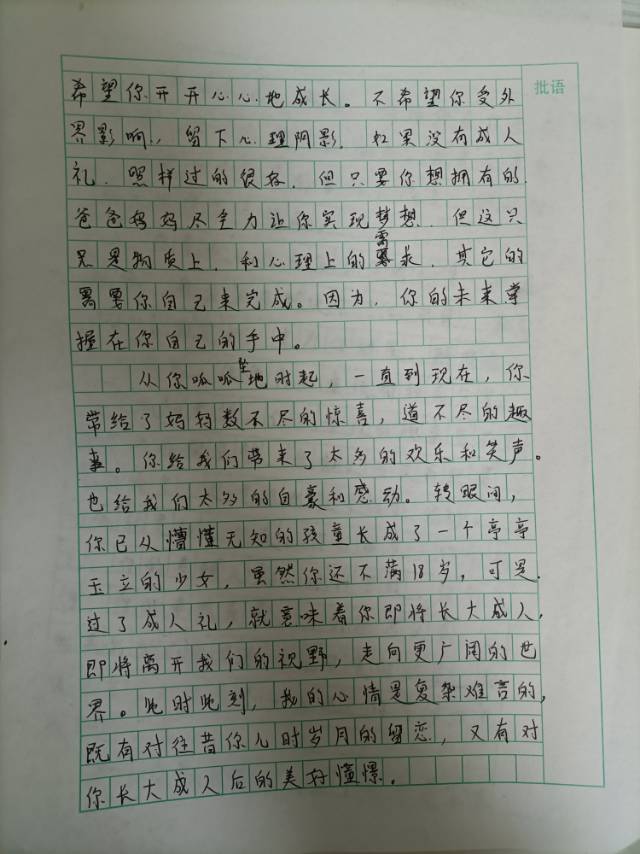 批语
希望你开开心心地成长。不希望你受外
界影响,留下心理阴影。如果没有成人
礼.照样过的很好.但只要你想拥有的.
爸爸妈妈尽全力让你实现梦想.但这只
是物质上.和心理上的需求.其它的
需要你自己来完成。因为.你的未来掌
握在你自己的手中。
从你呱呱坠地时起,一直到现在,你
带给了妈妈数不尽的惊喜,道不尽的趣
事。你给我们带来了太多的欢乐和笑声。
也给我们太多的自豪和感动。转眼间,
你已从懵懂无知的孩童长成了一个亭亭
玉立的少女,虽然你还不满18岁,可是.
过了成人礼,就意味着你即将长大成人.
即将离开我们的视野,走向更广阔的世
界。此时此刻,我的心情是复杂难言的,
既有对往昔你儿时岁月的留恋,又有对
你长大成人后的美好憧憬。